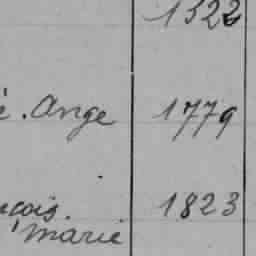 1322
é. Ange 1779
nçois. 1823
Marie